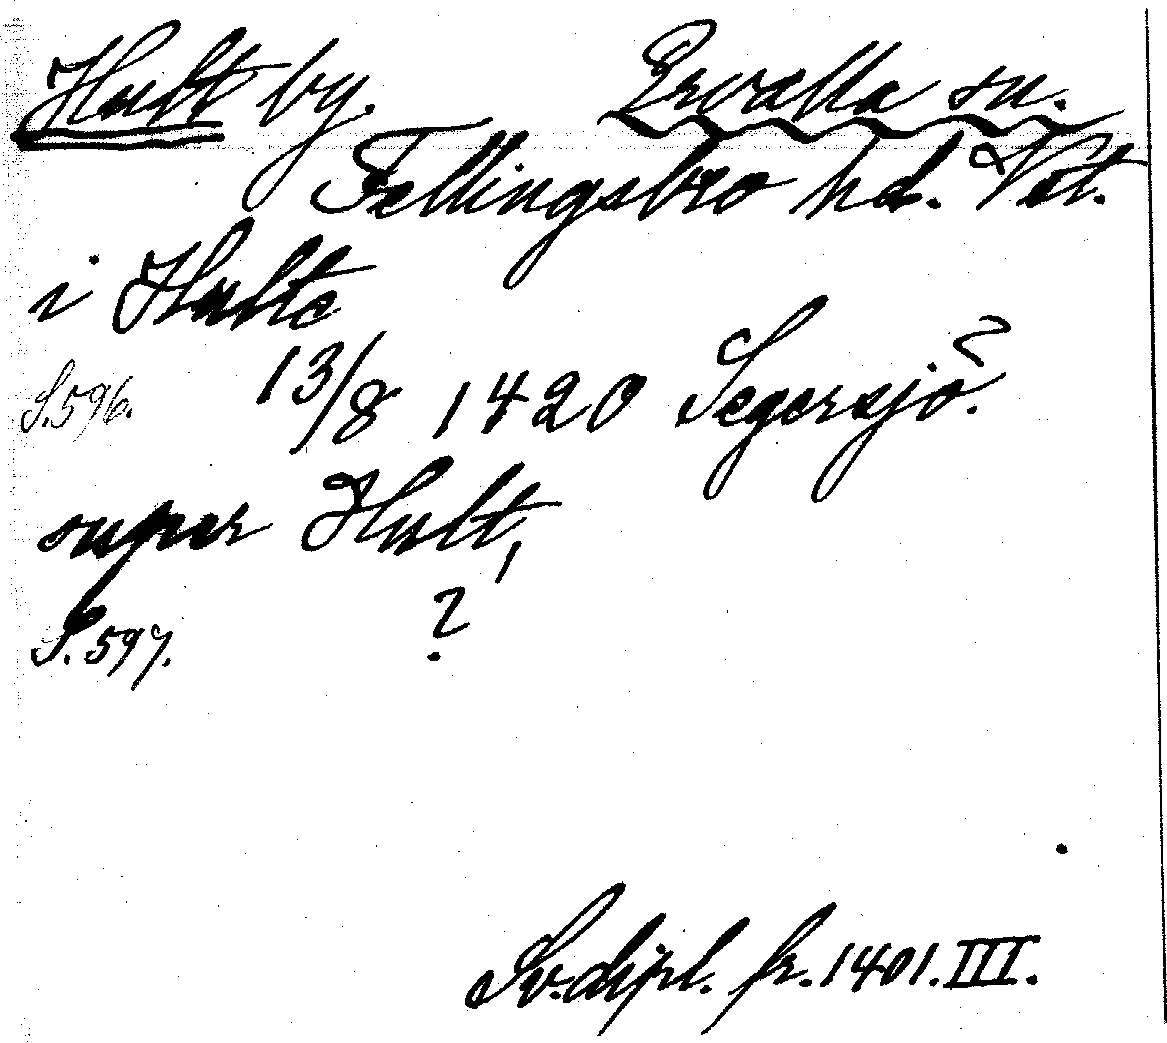 Hult by. Ervalla sn.
Fellingsbro hd. Vstl.
i Hulte
S. 596. 13/8 1420 Segersjö?
super Hult,
S. 597. ?
Sv. dipl. fr. 1401. III.